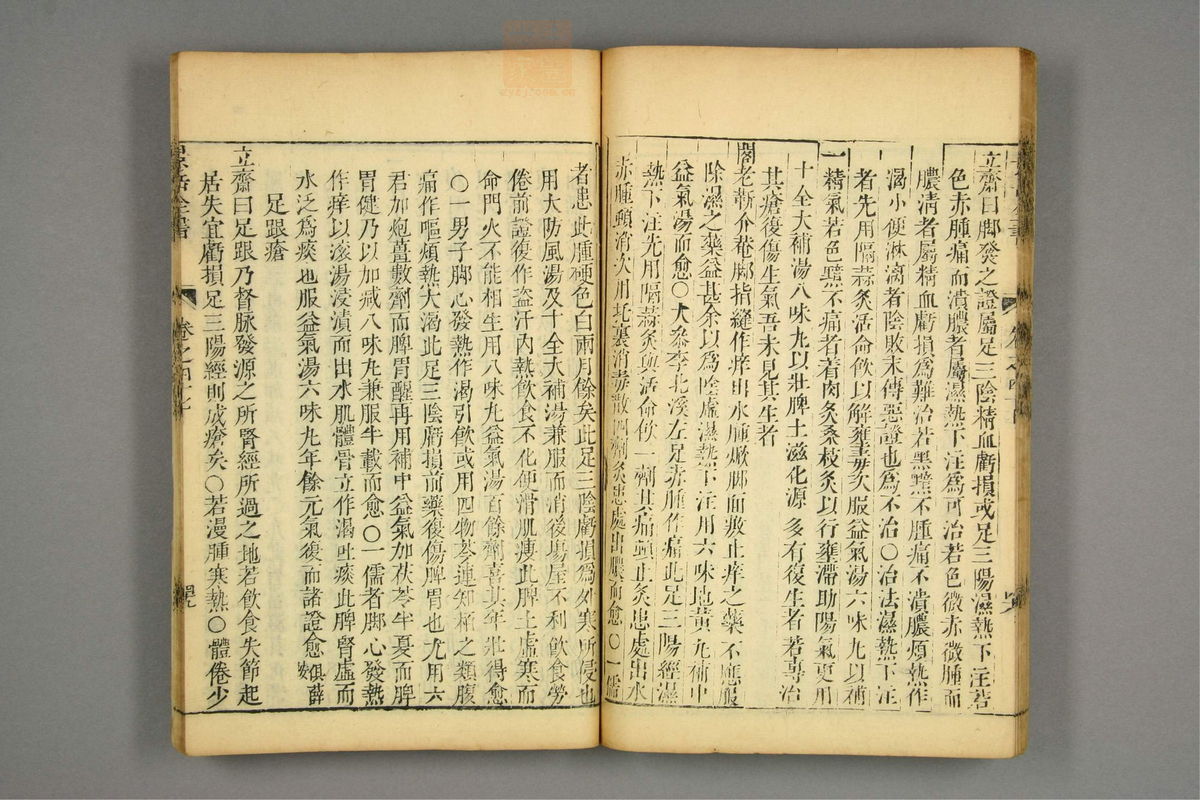 立齋曰脚發之證屬足三陰精血虧損或足三陽濕熱下注若
色赤腫痛而潰膿者屬濕熱下注爲可治若色微赤微腫而
膿清者屬精血虧損爲難治若黑黯不腫痛不潰膿煩熱作
渴小便淋漓者陰敗末傳惡證也爲不治○治法濕熱下注
者先用隔蒜灸活命飲以解壅毒次服益氣湯六味丸以補
精氣若色黯不痛者着肉灸桑枝灸以行壅滯助陽氣更用
十全大補湯八味丸以壯脾土滋化源多有復生者若專治
其瘡復傷生氣吾未見其生者
閣老靳介菴脚指縫作痒出水腫焮脚面敷止痒之藥不應服
除濕之藥益甚余以爲陰虛濕熱下注用六味地黃丸補中
益氣湯而愈○大參李北溪左足赤腫作痛此足三陽經濕
熱下注先用隔蒜灸與活命飲一劑其痛頓止灸患處出水
赤腫頓消次用托裏消毒散四劑灸患處出膿而愈○一儒
者患此腫硬色白兩月餘矣此足三陰虧損爲外寒所侵也
用大防風湯及十全大補湯兼服而消後塲屋不利飲食勞
倦前證復作盜汗內熱飲食不化便滑肌瘦此脾土虛寒而
命門火不能相生用八味丸益氣湯百餘劑喜其年壯得愈
○一男子脚心發熱作渴引飲或用四物芩連知栢之類腹
痛作嘔煩熱大渴此足三陰虧損前藥復傷脾胃也先用六
君加炮薑數劑而脾胃醒再用補中益氣加茯苓半夏而脾
胃健乃以加減八味丸兼服半載而愈○一儒者脚心發熱
作痒以滾湯浸漬而出水肌體骨立作渴吐痰此脾腎虛而
水泛爲痰也服益氣湯六味丸年餘元氣復而諸證愈俱薛按
足跟瘡
立齋曰足跟乃督脉發源之所腎經所過之地若飲食失節起
居失宜虧損足三陽經則成瘡矣○若漫腫寒熱○體倦少
景岳全書
卷之四十七